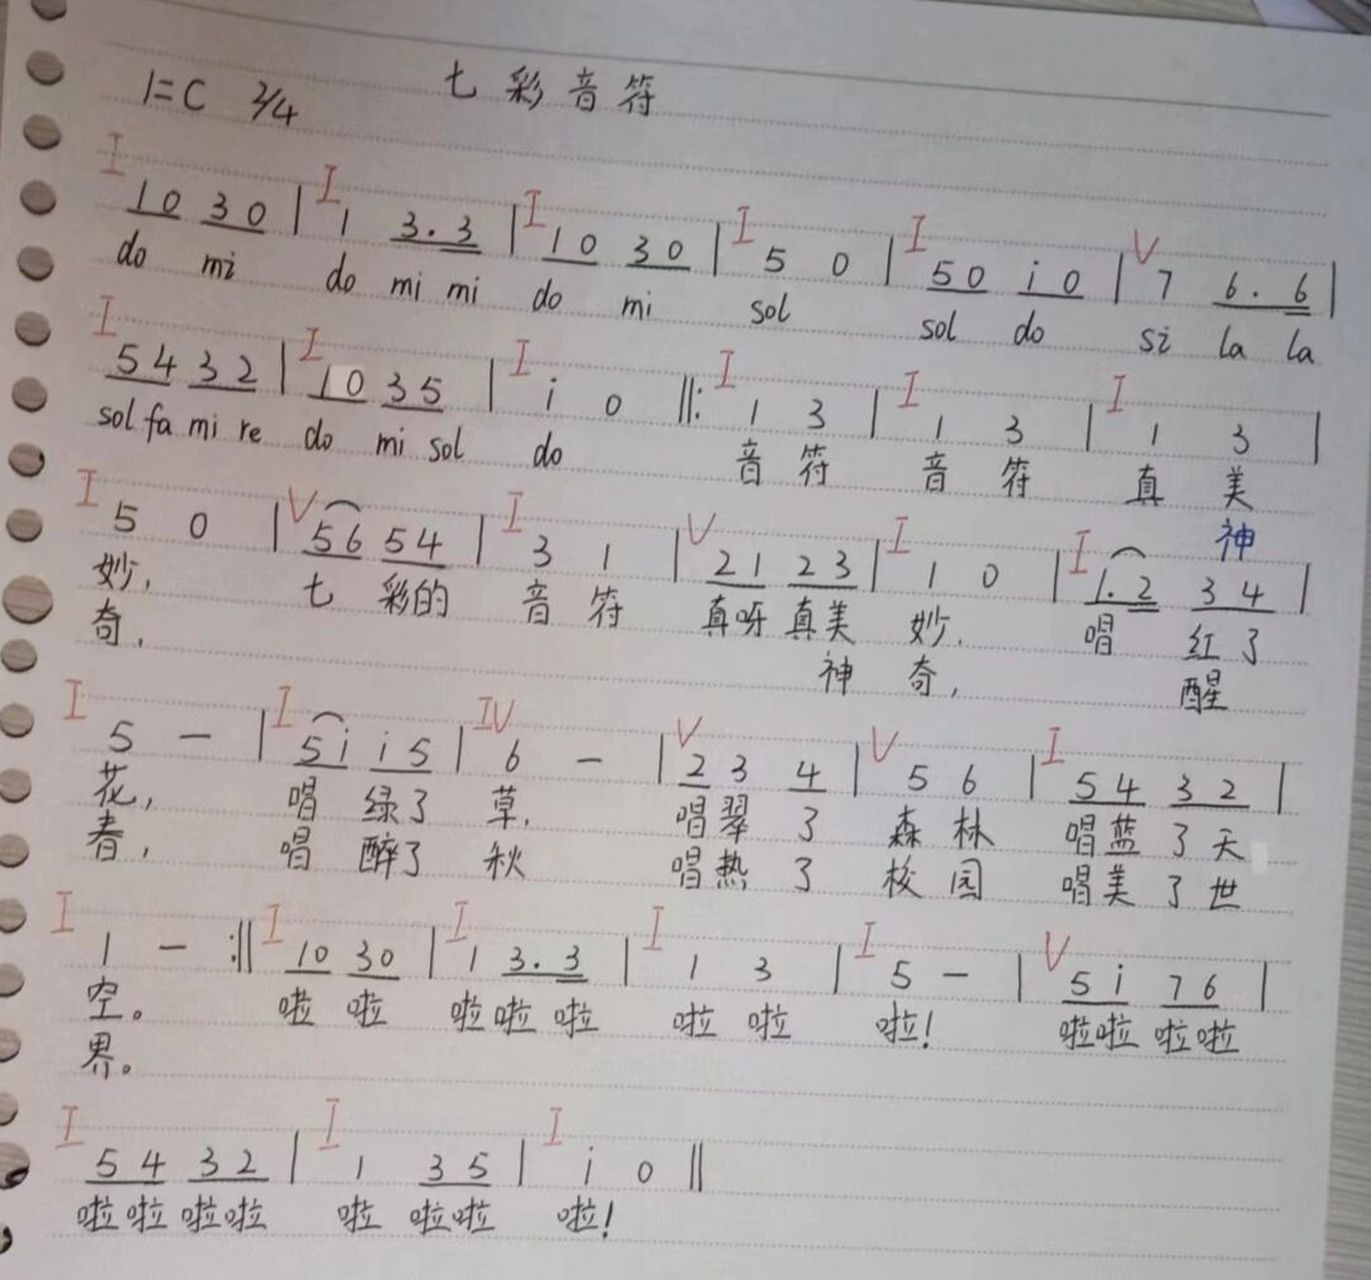 1=C 2/4 七彩音符
I I I I I V
10 30 | 1 3.3 | 10 30 | 5 0 | 50 i0 | 7 6.6 |
do mi do mi mi do mi sol sol do si la la
I I I I I I
54 32 | 10 35 | i 0 ‖: 1 3 | 1 3 | 1 3 |
sol fa mi re do mi sol do 音符 音符 真美
神
I V I V I I
5 0 | 56 54 | 3 1 | 21 23 | 1 0 | 1.2 34 |
妙, 七 彩的 音符 真呀真美 妙. 唱 红了
奇. 神 奇, 醒
I I IV V V I
5 - | 5i i5 | 6 - | 2 3 4 | 5 6 | 54 32 |
花, 唱 绿了 草. 唱翠了 森林 唱蓝了天
春, 唱 醉了 秋 唱热了 校园 唱美了世
I I I I I V
1 - :‖ 10 30 | 1 3.3 | 1 3 | 5 - | 5i 76 |
空。 啦 啦 啦啦啦 啦啦 啦! 啦啦啦啦
界。
I I I
54 32 | 1 35 | i 0 ‖
啦啦啦啦 啦 啦啦 啦!